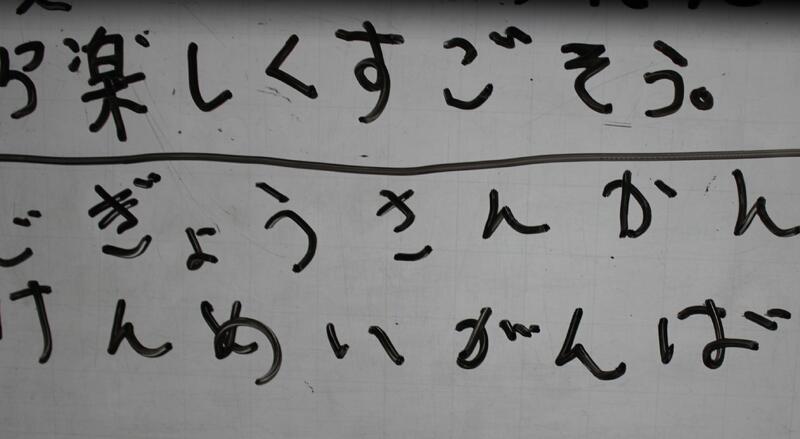 楽しくすごそう。
ごぎょうさんかん
けんめいがんば